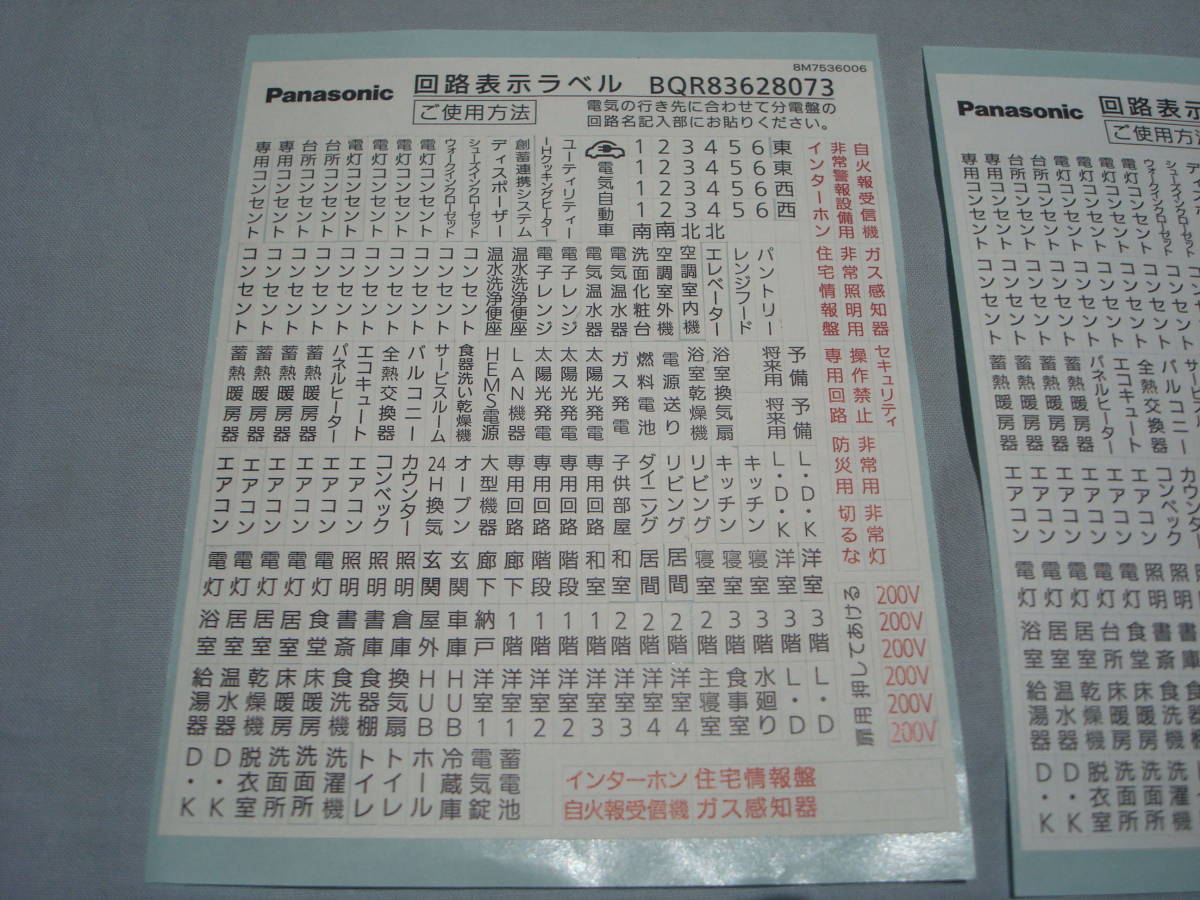 8M7536006
Panasonic 回路表示ラベル BQR83628073
ご使用方法 電気の行き先に合わせて分電盤の
回路名記入部にお貼りください。
専用コンセント
専用コンセント
台所コンセント
台所コンセント
電灯コンセント
電灯コンセント
電灯コンセント
電灯コンセント
ウォークインクローゼット
シューズインクローゼット
ディスポーザー
創蓄連携システム
IHクッキングヒーター
ユーティリティー
電気自動車
1111南
2222南
3333北
4444北
5555
6666
東東西西
インターホン
非常警報設備用
自火報受信機
コンセント
コンセント
コンセント
コンセント
コンセント
コンセント
コンセント
コンセント
コンセント
コンセント
温水洗浄便座
温水洗浄便座
電子レンジ
電子レンジ
電気温水器
電気温水器
洗面化粧台
空調室外機
空調室内機
エレベーター
レンジフード
パントリー
住宅情報盤
非常照明用
ガス感知器
蓄熱暖房器
蓄熱暖房器
蓄熱暖房器
蓄熱暖房器
パネルヒーター
エコキュート
全熱交換器
バルコニー
サービスルーム
食器洗い乾燥機
HEMS電源
LAN機器
太陽光発電
太陽光発電
太陽光発電
ガス発電
燃料電池
電源送り
浴室乾燥機
浴室換気扇
将来用
予備
将来用
予備
専用回路
操作禁止
セキュリティ
エアコン
エアコン
エアコン
エアコン
エアコン
エアコン
コンベック
カウンター
24H換気
オーブン
大型機器
専用回路
専用回路
専用回路
専用回路
子供部屋
ダイニング
リビング
リビング
キッチン
キッチン
L・D・K
L・D・K
防災用
非常用
切るな
非常灯
電灯
電灯
電灯
電灯
電灯
照明
照明
照明
玄関
玄関
廊下
廊下
階段
階段
和室
和室
居間
居間
寝室
寝室
寝室
洋室
洋室
浴室
居室
居室
居室
食堂
書斎
書庫
倉庫
屋外
車庫
納戸
1階
1階
1階
1階
2階
2階
2階
2階
3階
3階
3階
3階
扉用 押してあける
200V
200V
200V
200V
200V
200V
給湯器
温水器
乾燥機
床暖房
床暖房
食洗機
食器棚
換気扇
HUB
HUB
洋室1
洋室1
洋室2
洋室2
洋室3
洋室3
洋室4
洋室4
主寝室
食事室
水廻り
L・D
L・D
D・K
D・K
脱衣室
洗面所
洗面所
洗濯機
トイレ
トイレ
ホール
冷蔵庫
電気錠
蓄電池
インターホン 住宅情報盤
自火報受信機 ガス感知器
Panasonic 回路表示
ご使用方
専用コンセント
専用コンセント
台所コンセント
台所コンセント
電灯コンセント
電灯コンセント
電灯コンセント
電灯コンセント
ウォークインクローゼット
シューズインクローゼット
コンセント
コンセント
コンセント
コンセント
コンセント
コンセント
コンセント
コンセント
コンセント
蓄熱暖房器
蓄熱暖房器
蓄熱暖房器
蓄熱暖房器
パネルヒーター
エコキュート
全熱交換器
バルコニー
エアコン
エアコン
エアコン
エアコン
エアコン
エアコン
コンベック
カウンター
電灯
電灯
電灯
電灯
電灯
照明
照明
照明
浴室
居室
居室
台所
食堂
書斎
書庫
給湯器
温水器
乾燥機
床暖房
床暖房
食洗機
D・K
D・K
脱衣室
洗面所
洗面所
洗濯機